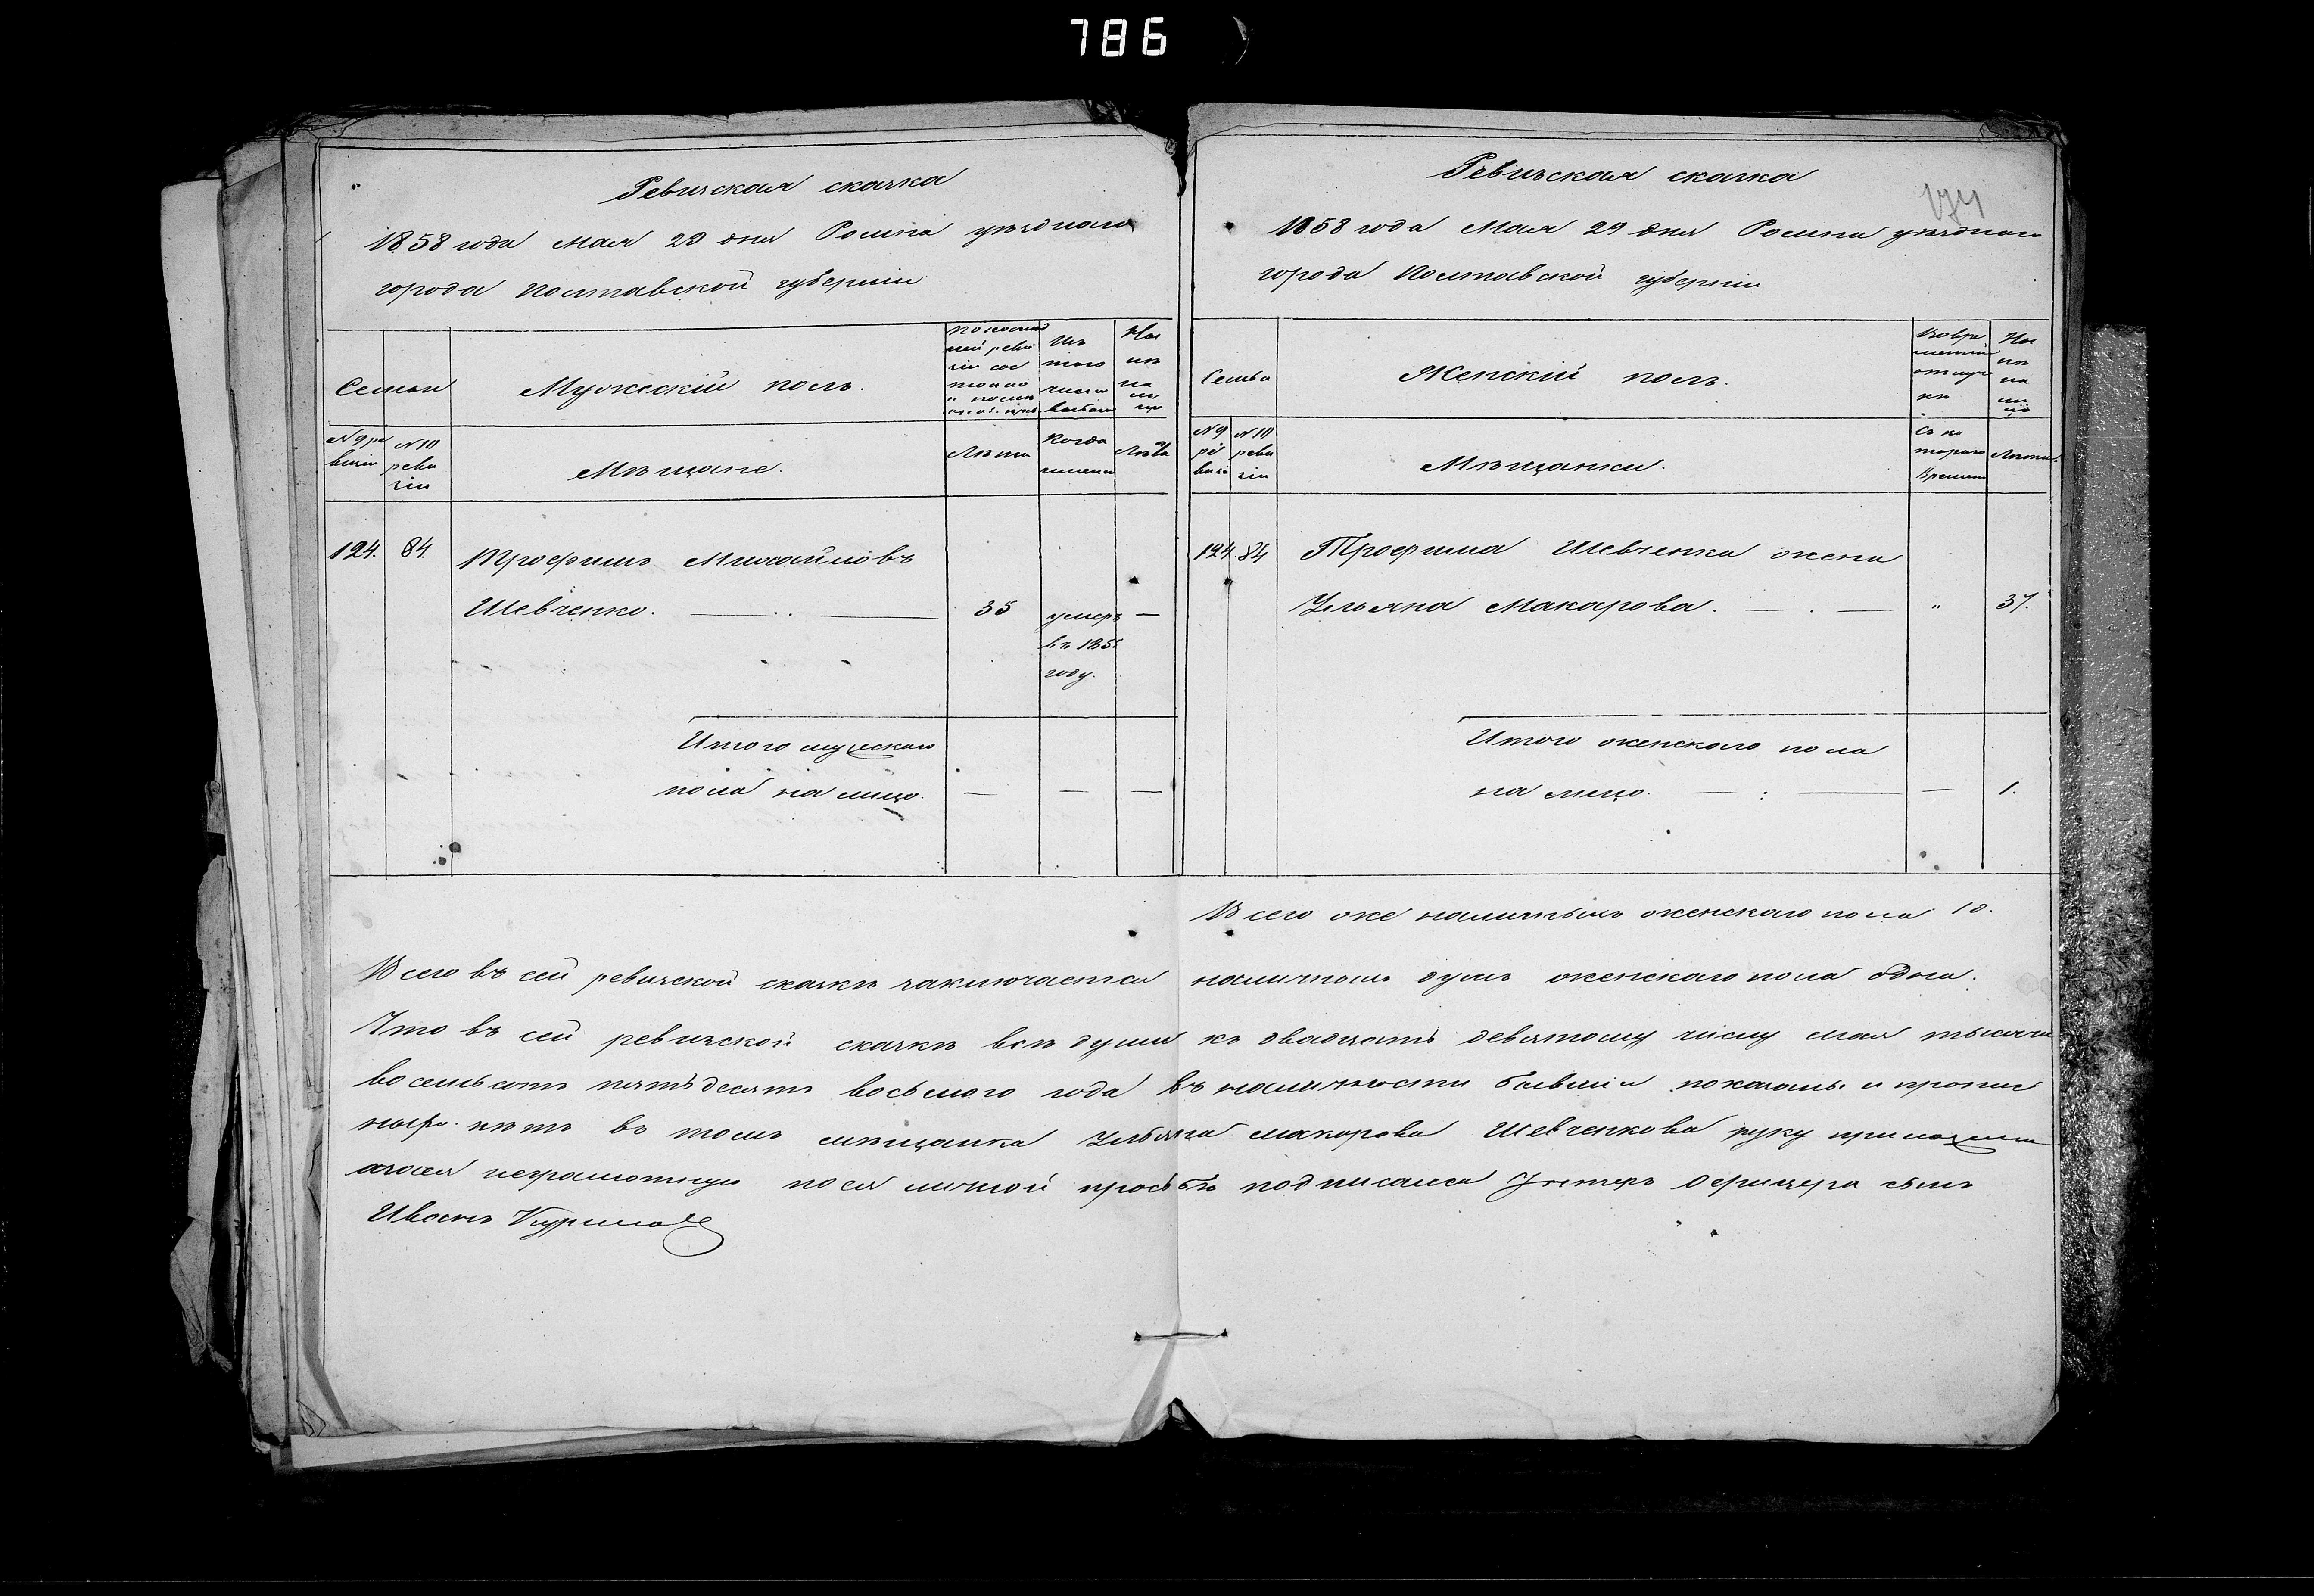 786
174
Ревизская сказка
1858 года Мая 29 дня Ромна уѣзднаго
города Полтавской губерніи
Семьи
Мужескій полъ.
Изъ
того
числа
выбыло
На
ли
цо
№ 9 ре
визіи
№ 10
реви
зіи
Мѣщане.
Лѣта
Когда
именно
Лѣта
124.
84.
Трофимъ Михайловъ
Шевченко.
35
умеръ
въ 185
году.
—
Итого мужескаго
пола на лицо.
— — —
Ревизская сказка
1858 года Мая 29 дня Ромна уѣзднаго
города Полтавской губерніи
Семья
Женскій полъ.
Во вре
менной
отлуч
кѣ
На
ли
цо
№ 9
ре
визіи
№ 10
реви
зіи
Мѣщанки.
Съ ко
тораго
Времени
Лѣта
124
84
Трофима Шевченка жена
Ульяна Макарова.
„
37.
Итого женскаго пола
на лицо.
—
1.
Всего же наличныхъ женскаго пола 1 д.
Всего въ сей ревизской сказкѣ заключается наличныхъ душъ женскаго пола одна.
Что въ сей ревизской сказкѣ всѣ души къ двадцать девятому числу мая тысяча
восемьсотъ пятьдесятъ восьмого года въ наличности бывшія показаны и пропис
нѣтъ въ томъ мѣщанка Ульяна макарова Шевченкова руку приложила
а за нея неграмотную по ея личной просьбѣ подписался Унтеръ Офицера сынъ
Иванъ